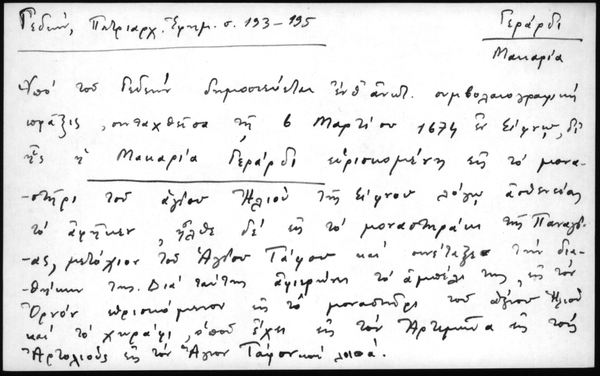 Γεδεών, Πατριαρχ. Ἐφημ. σ. 193-195
Γεράρδι
Μακαρία
Ὑπό τοῦ Γεδεών δημοσιεύεται ἐνθ' ἀνωτ. συμβολαιογραφική
πρᾶξις, συνταχθεῖσα τῇ 6 Μαρτίου 1674 ἐν Σίφνῳ, δι'
ἧς ἡ Μακαρία Γεράρδι εὑρισκομένη εἰς τό μονα-
-στῆρι τοῦ ἁγίου Ἠλιοῦ τῆς Σίφνου λόγῳ ἀσθενείας
τό ἀφῆκεν, ἦλθε δέ εἰς τό μοναστηράκι τῆς Παναγί-
-ας, μετόχιον τοῦ Ἁγίου Τάφου καί συνέταξε τήν δια-
-θήκην της. Διά ταύτης ἀφιερώνει τό ἀμπέλι της, εἰς τόν
εὑρισκόμενον εἰς τό μοναστῆρι τοῦ ἁγίου Ἠλιοῦ
καί τό χωράφι, ὁποῦ ἔχει εἰς τόν εἰς τούς
εἰς τόν Ἅγιον Τάφον καί λοιπά.